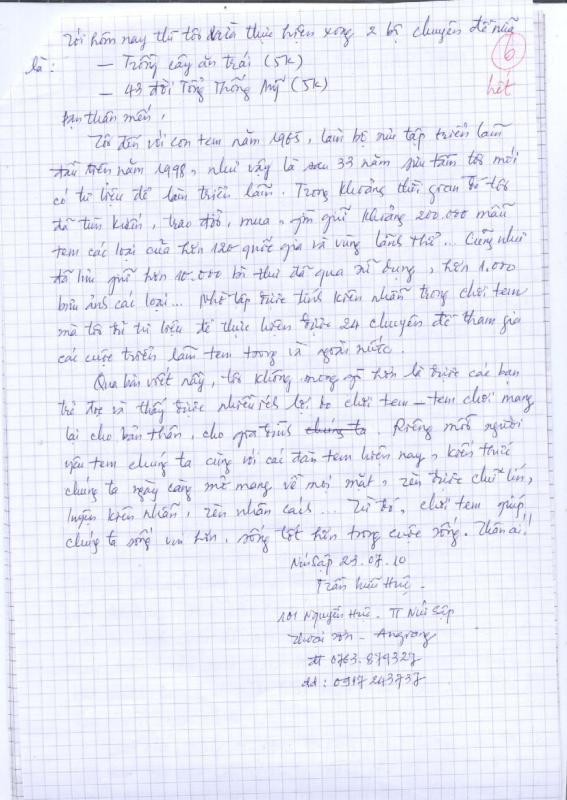 Tới hôm nay thì tôi vừa thực hiện xong 2 bộ chuyên đề nữa
là :
— Trồng cây ăn trái (5k)
— 43 đời Tổng Thống Mỹ (5k)
6
hết
Bạn thân mến,
Tôi đến với con tem năm 1965, làm bộ sưu tập triển lãm
đầu tiên năm 1998, như vậy là sau 33 năm sưu tầm tôi mới
có tư liệu để làm triển lãm. Trong khoảng thời gian đó tôi
đã tìm kiếm, trao đổi, mua, gìn giữ khoảng 200.000 mẫu
tem các loại của hơn 120 quốc gia và vùng lãnh thổ... Cũng như
đã lưu giữ hơn 10.000 bì thư đã qua sử dụng, hơn 1.000
bưu ảnh các loại... Nhờ tập được tính kiên nhẫn trong chơi tem
mà tôi đủ tư liệu để thực hiện được 24 chuyên đề tham gia
các cuộc triển lãm tem trong và ngoài nước.
Qua bài viết nầy, tôi không mong gì hơn là được các bạn
trẻ đọc và thấy được nhiều ích lợi do chơi tem – tem chơi mang
lại cho bản thân, cho gia đình chúng ta. Riêng mỗi người
yêu tem chúng ta cùng với các đàn tem hiện nay, kiến thức
chúng ta ngày càng mở mang về mọi mặt, rèn được chữ tín,
luyện kiên nhẫn, rèn nhân cách... Từ đó, chơi tem giúp
chúng ta sống vui hơn, sống tốt hơn trong cuộc sống. Thân ái!
Núi Sập 23.07.10
Trần Hữu Huệ.
101 Nguyễn Huệ. TT Núi Sập
Thoại Sơn – Angiang
đt 0763.879327
dđ : 0917243737